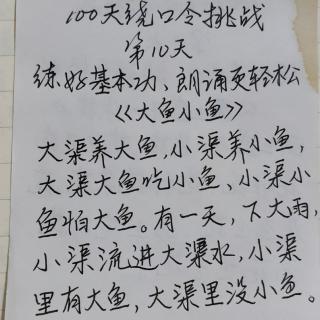 100天绕口令挑战
第10天
练好基本功、朗诵更轻松
《大鱼小鱼》
大渠养大鱼,小渠养小鱼,
大渠大鱼吃小鱼、小渠小
鱼怕大鱼。有一天,下大雨,
小渠流进大渠水,小渠
里有大鱼,大渠里没小鱼。